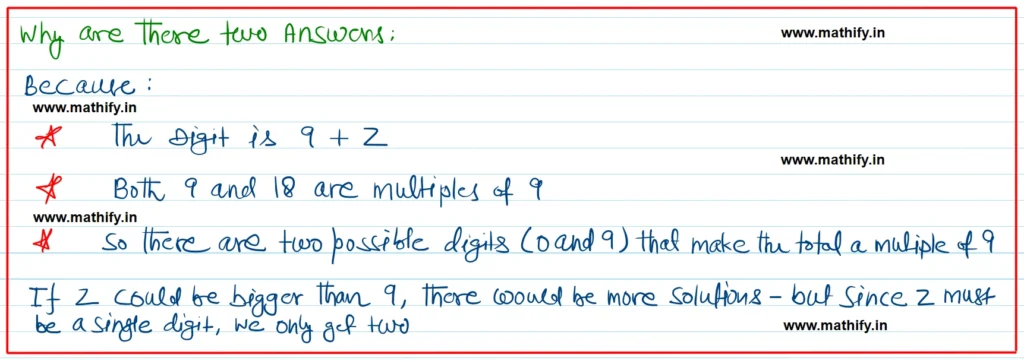 Why are there two Answers:
www.mathify.in
Because:
www.mathify.in
The Digit is 9 + z
www.mathify.in
Both 9 and 18 are multiples of 9
www.mathify.in
So there are two possible digits (0 and 9) that make the total a muliple of 9
If z could be bigger than 9, there would be more solutions - but since z must
be a single digit, we only get two
www.mathify.in